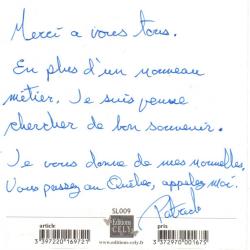 Merci a vous tous.
En plus d'un nouveau
métier. Je suis venue
chercher de bon souvenir.
Je vous donne de mes nouvelles,
Vous passez au Québec, appelez moi.
SL009
article
prix
Editions
CELY
3 397220 169721
www.editions-cely.fr
3 372970 001675